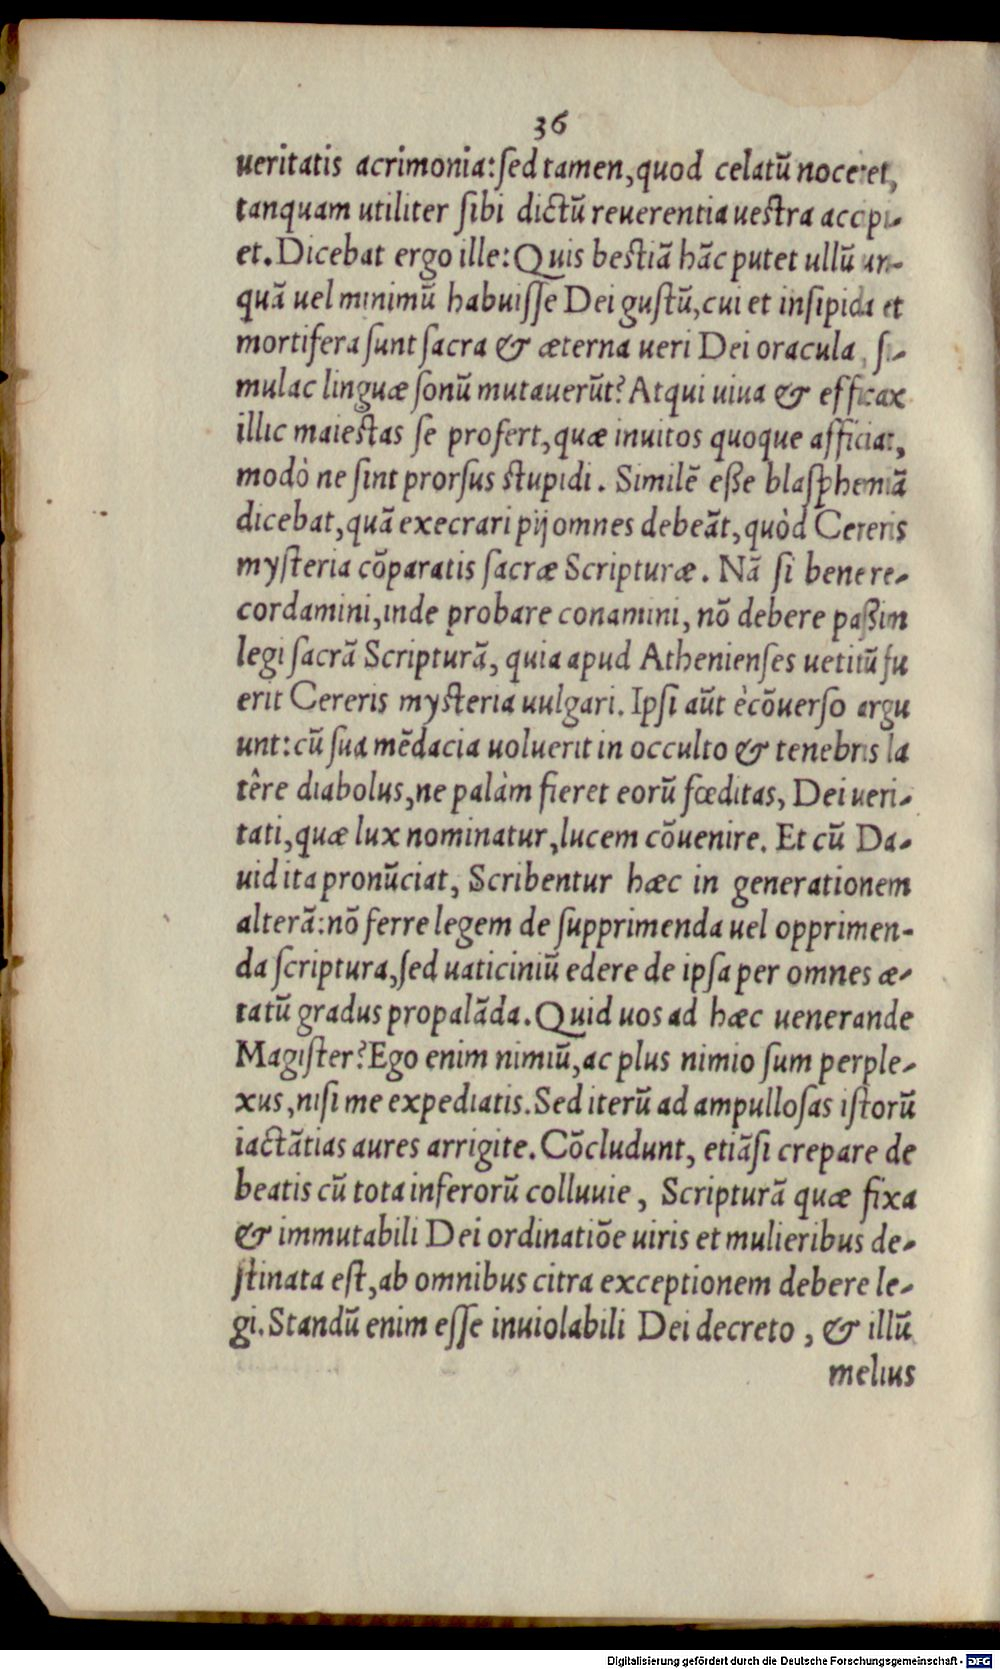 36
ueritatis acrimonia: ſed tamen, quod celatũ noceret,
tanquam utiliter ſibi dictũ reuerentia ueſtra accipi-
et. Dicebat ergo ille: Quis beſtiã hãc putet ullũ un-
quã uel minimũ habuiſſe Dei guſtũ, cui et inſipida et
mortifera ſunt ſacra & æterna ueri Dei oracula, ſi-
mulac linguæ ſonũ mutauerũt? Atqui uiua & efficax
illic maieſtas ſe profert, quæ inuitos quoque afficiat,
modò ne ſint prorſus ſtupidi. Similẽ eße blaſphemiã
dicebat, quã execrari pij omnes debeãt, quòd Cereris
myſteria cõparatis ſacræ Scripturæ. Nã ſi bene re-
cordamini, inde probare conamini, nõ debere paßim
legi ſacrã Scripturã, quia apud Athenienſes uetitũ fu
erit Cereris myſteria uulgari. Ipſi aũt ècõuerſo argu
unt: cũ ſua mẽdacia uoluerit in occulto & tenebris la
têre diabolus, ne palàm fieret eorũ fœditas, Dei ueri-
tati, quæ lux nominatur, lucem cõuenire. Et cũ Da-
uid ita pronũciat, Scribentur hæc in generationem
alterã: nõ ferre legem de ſupprimenda uel opprimen-
da ſcriptura, ſed uaticiniũ edere de ipſa per omnes æ-
tatũ gradus propalãda. Quid uos ad hæc uenerande
Magiſter? Ego enim nimiũ, ac plus nimio ſum perple-
xus, niſi me expediatis. Sed iterũ ad ampulloſas iſtorũ
iactãtias aures arrigite. Cõcludunt, etiãſi crepare de
beatis cũ tota inferorũ colluuie, Scripturã quæ fixa
& immutabili Dei ordinatiõe uiris et mulieribus de-
ſtinata eſt, ab omnibus citra exceptionem debere le-
gi. Standũ enim eſſe inuiolabili Dei decreto, & illũ
melius
Digitalisierung gefördert durch die Deutsche Forschungsgemeinschaft - DFG